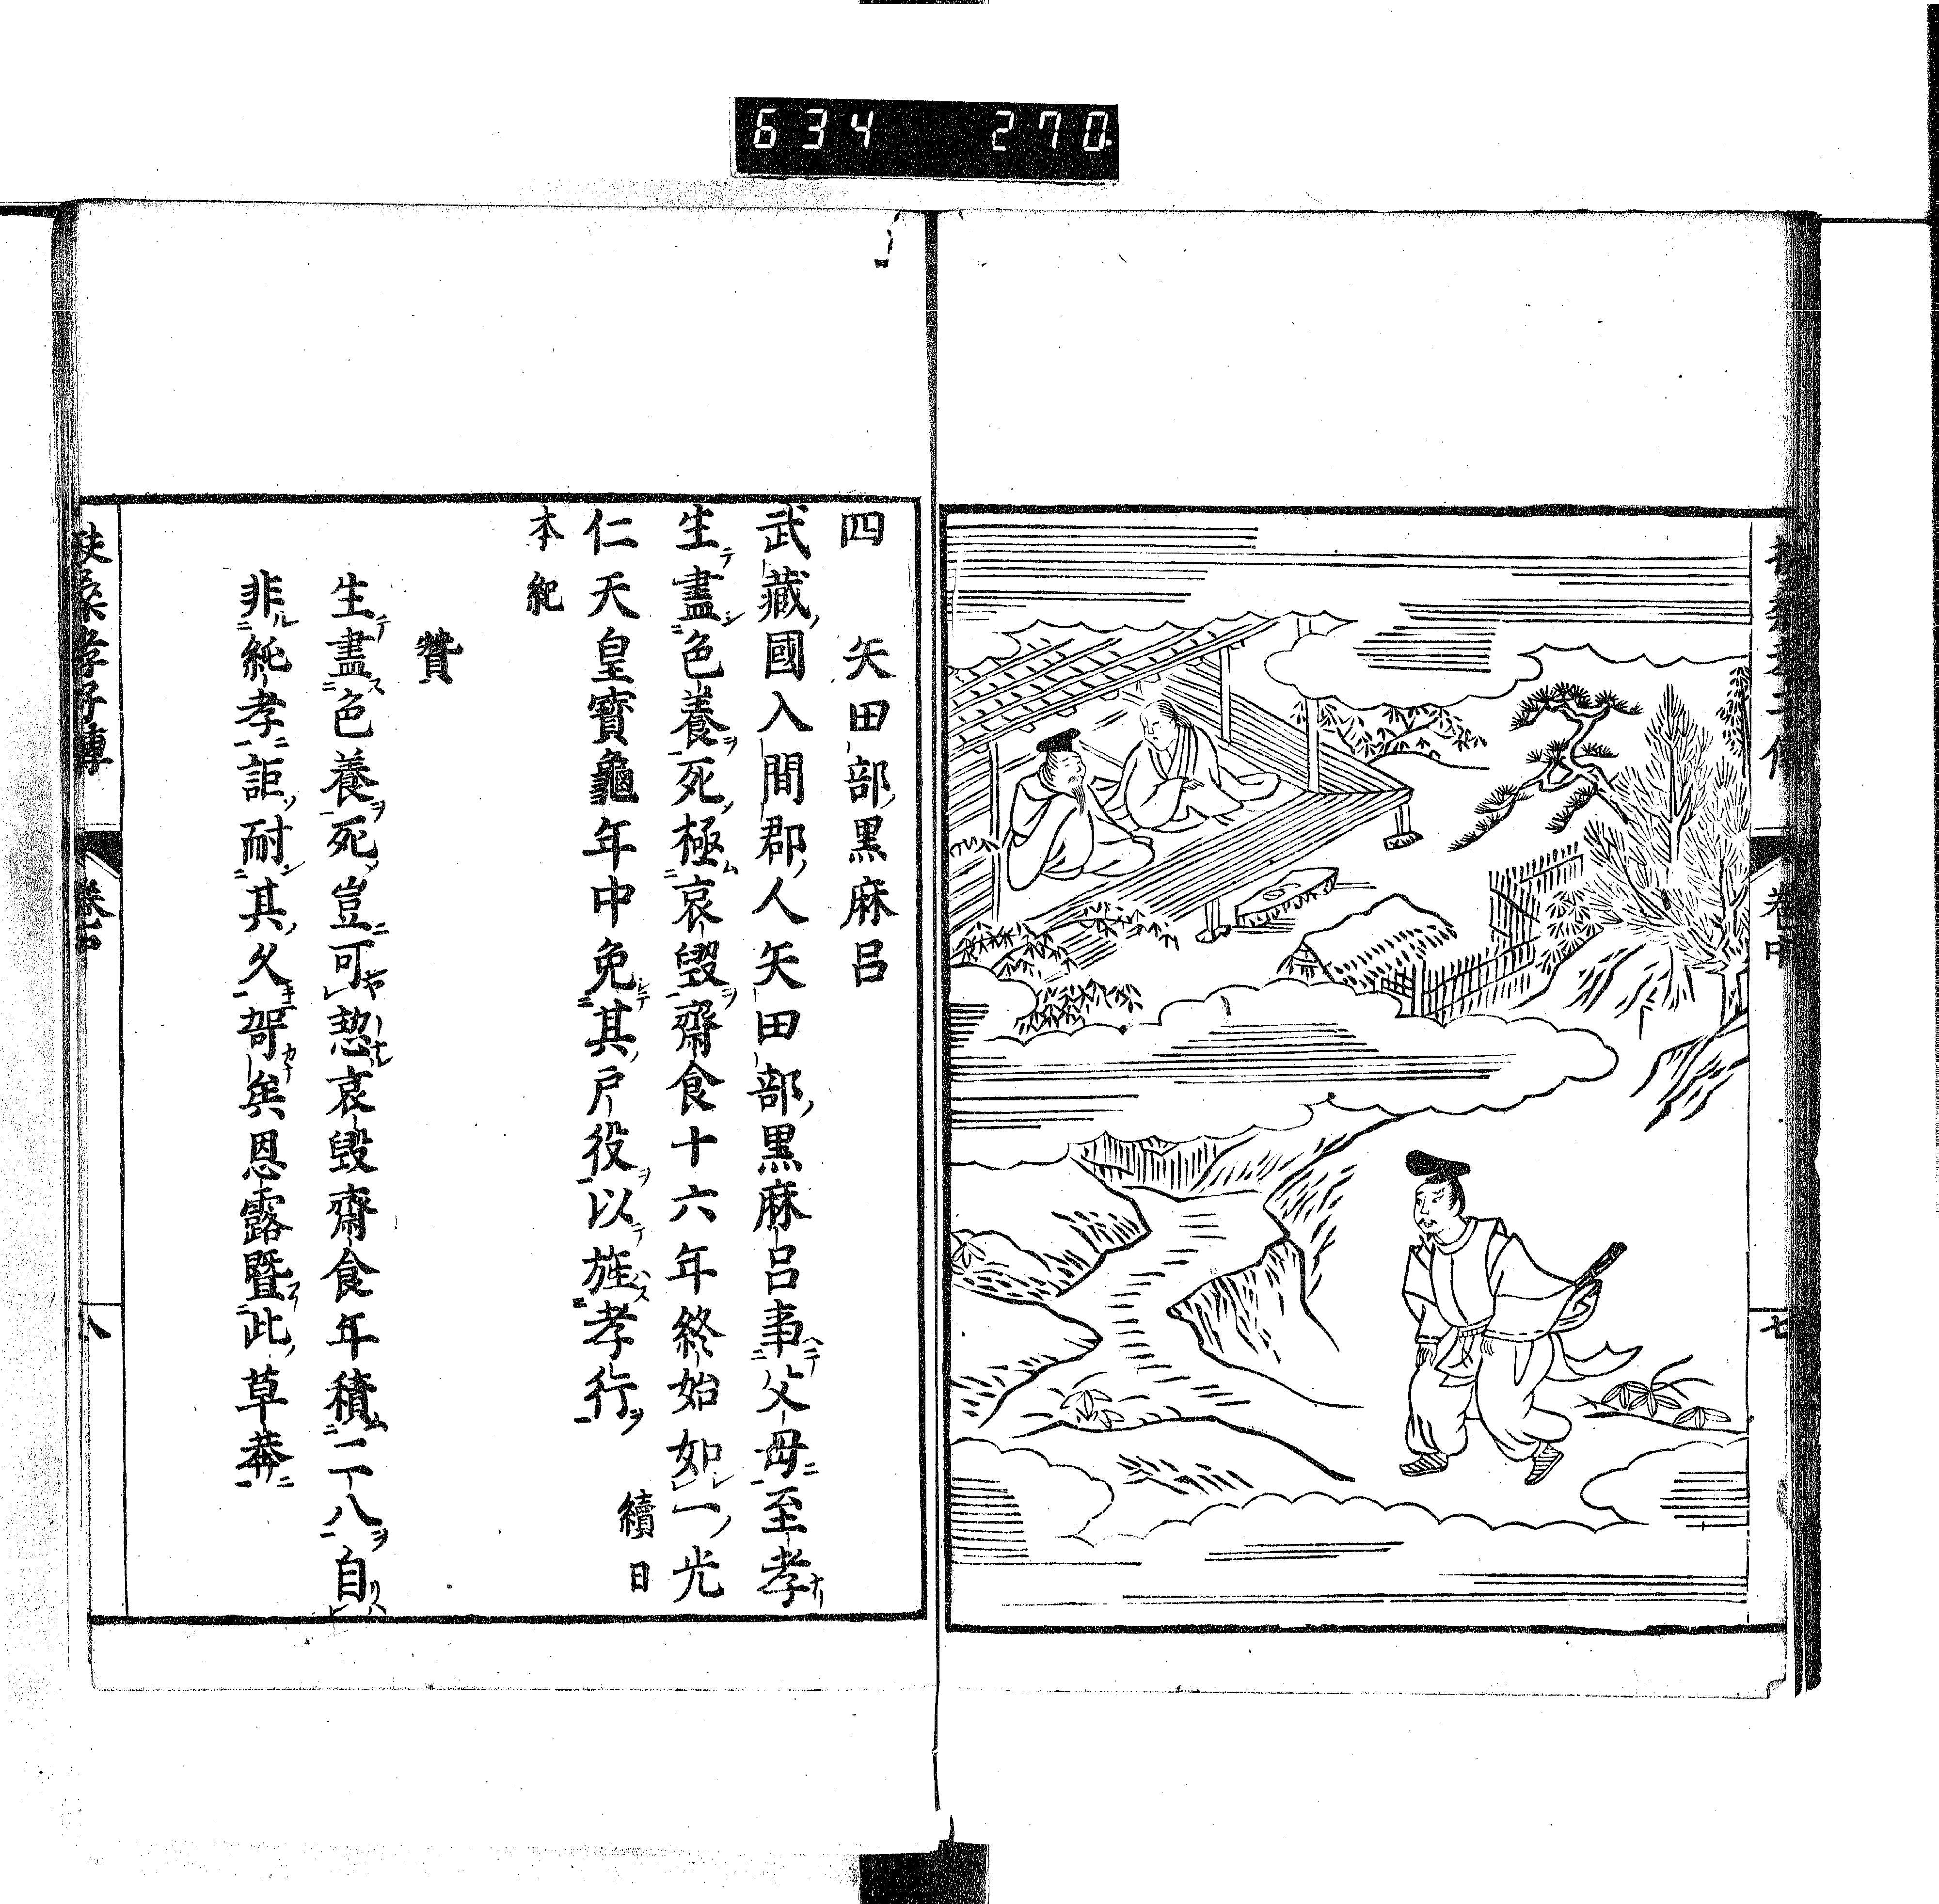 634 270
卷中
七
四　矢田部黒麻呂
武藏國入間郡人矢田部黒麻呂事父母至孝
生盡色養死極哀毀齋食十六年終始如一光
仁天皇寶龜年中免其戸役以旌孝行　續日
本紀
贊
生盡色養死豈可愆哀毀齋食年積二八自
非純孝詎耐其久哿矣恩露曁此草莽
扶桑孝子傳
卷中
八